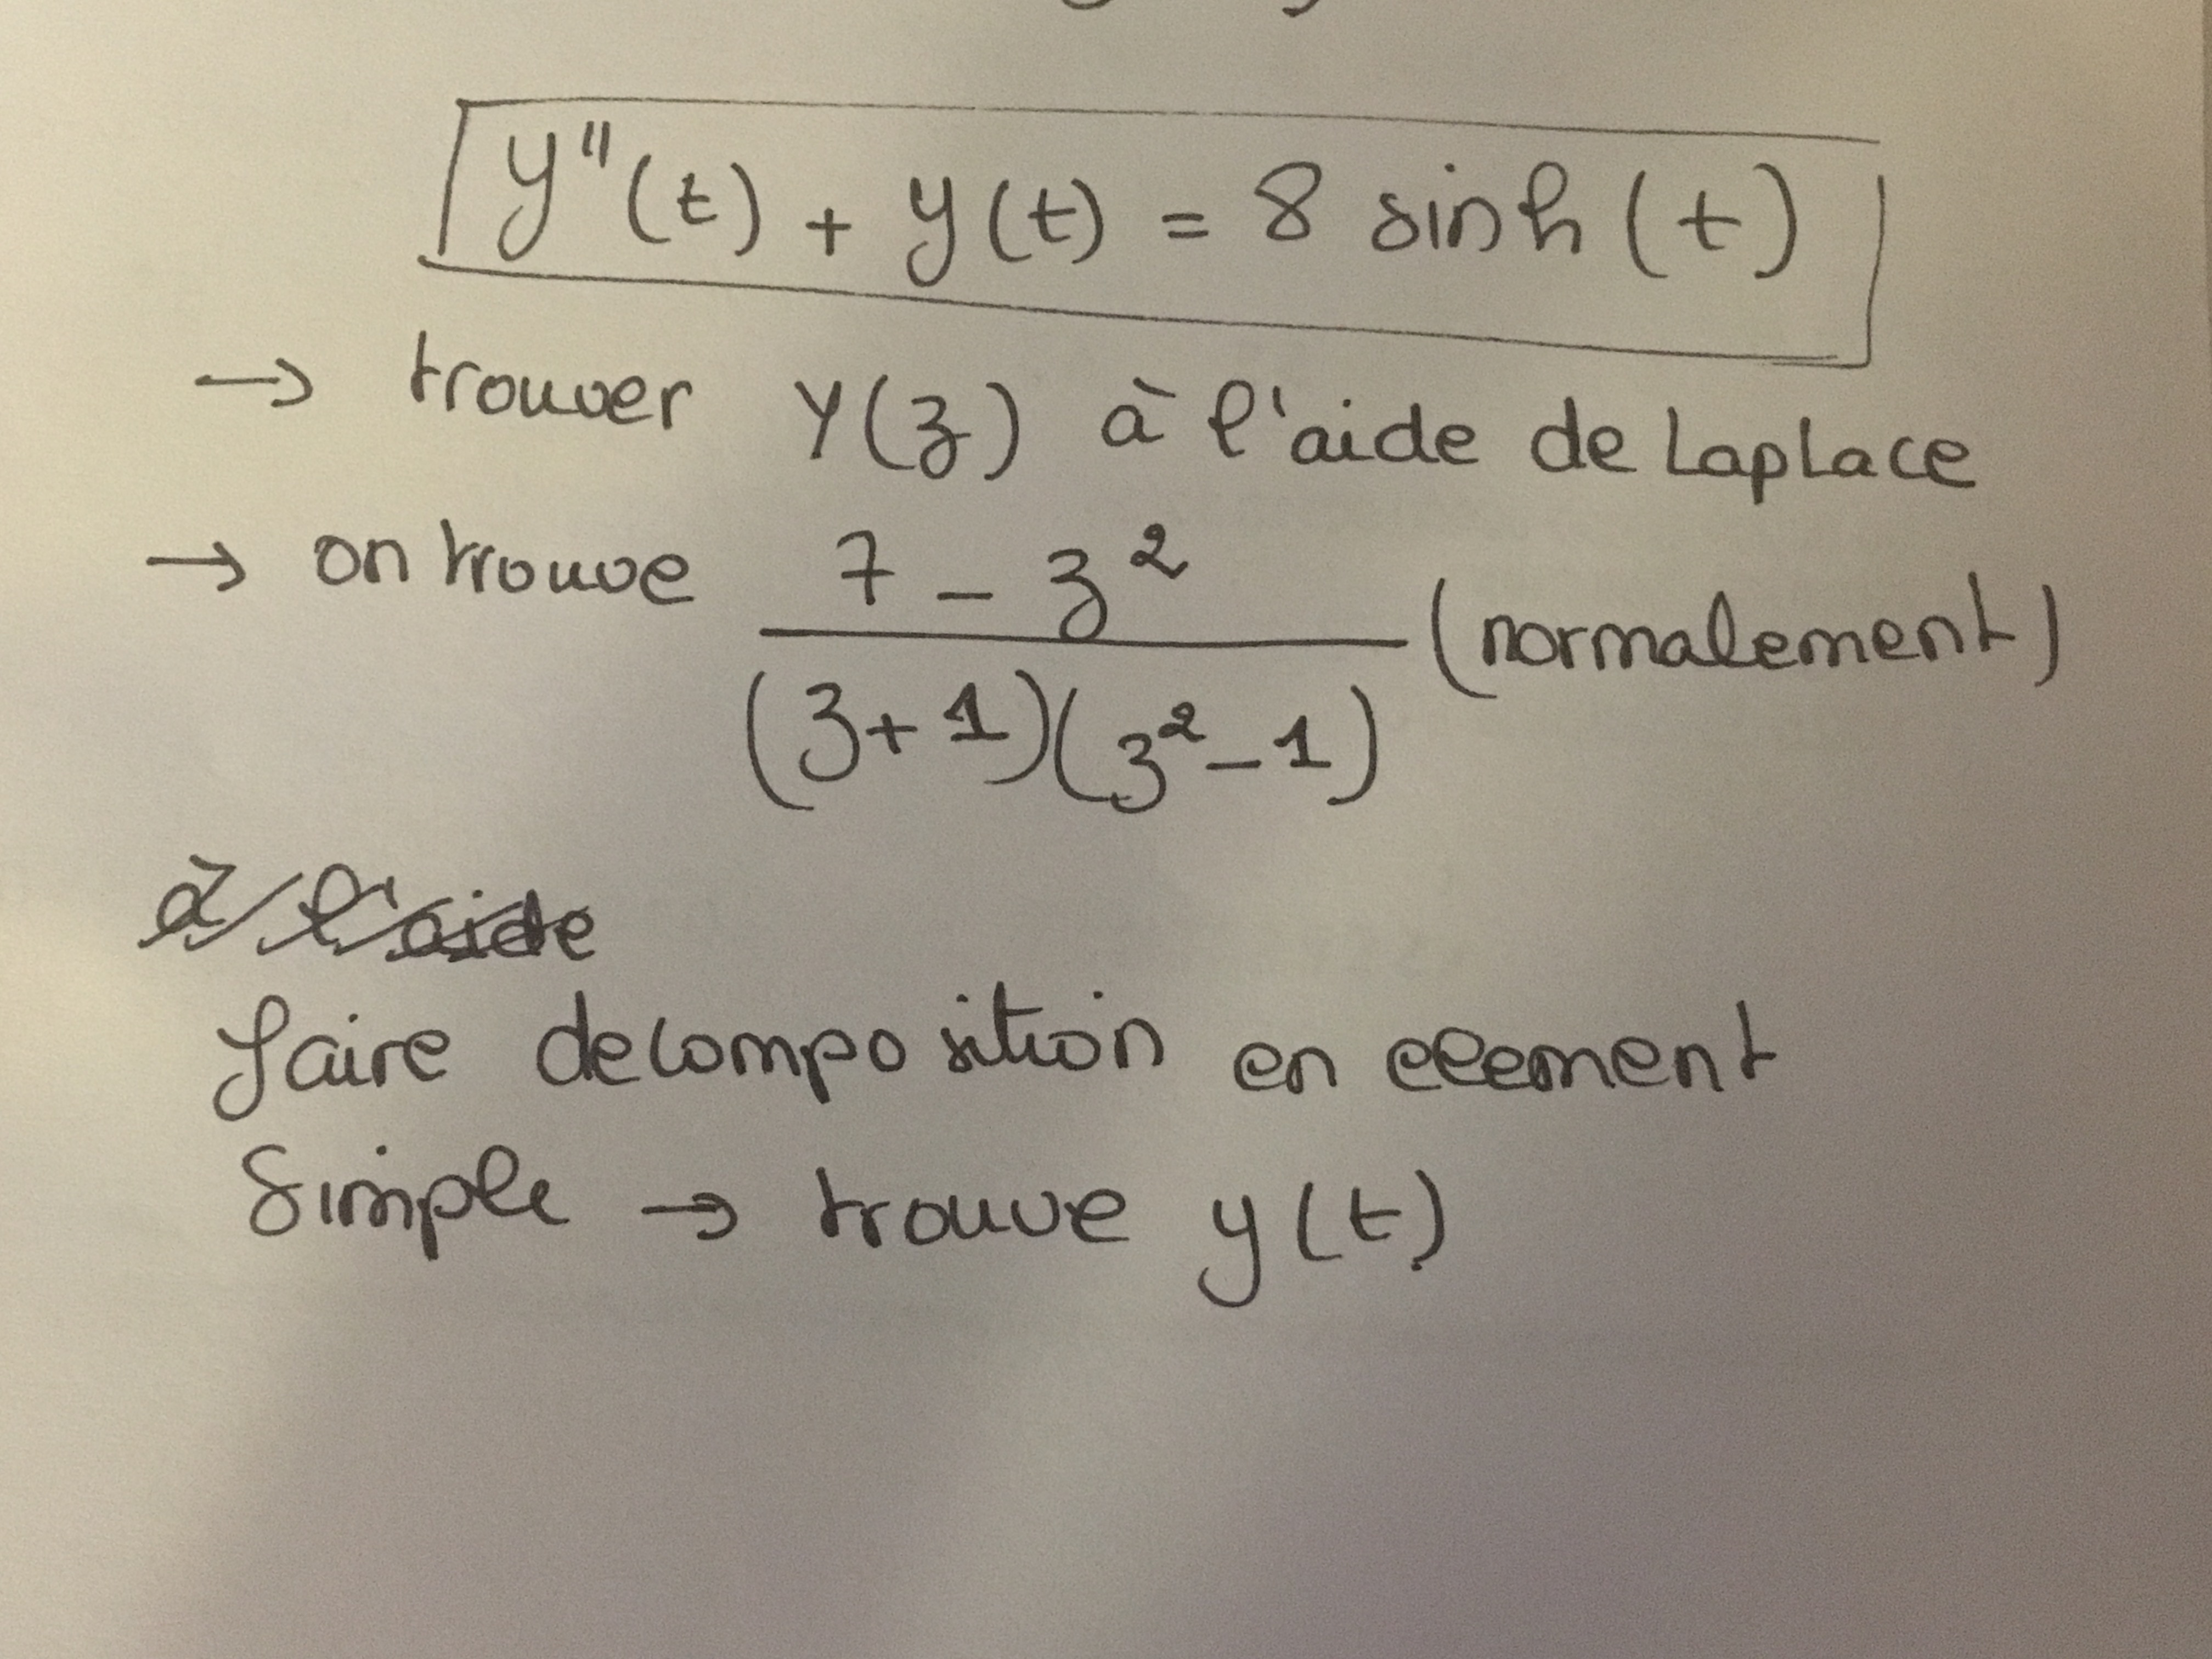 y"(t) + y(t) = 8 sinh(t)
→ trouver Y(z) à l'aide de Laplace
→ on trouve 7 - z² / (z+1)(z²-1) (normalement)
à l'aide
faire decomposition en element
Simple → trouve y(t)